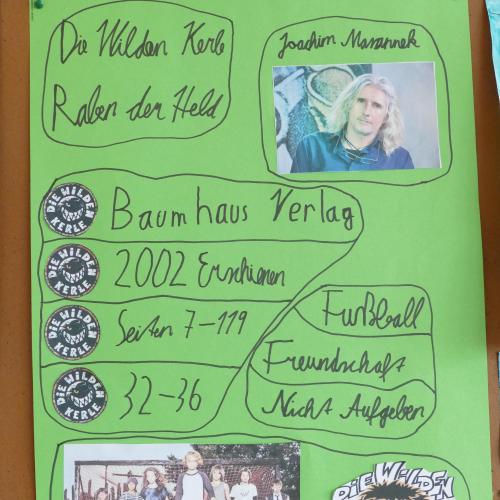 Die Wilden Kerle
Raben der Held
Joachim Masannek
DIE WILDEN KERLE
Baumhaus Verlag
DIE WILDEN KERLE
2002 Erschienen
DIE WILDEN KERLE
Seiten 7-119
DIE WILDEN KERLE
32-36
Fußball
Freundschaft
Nicht Aufgeben
DIE WILDEN